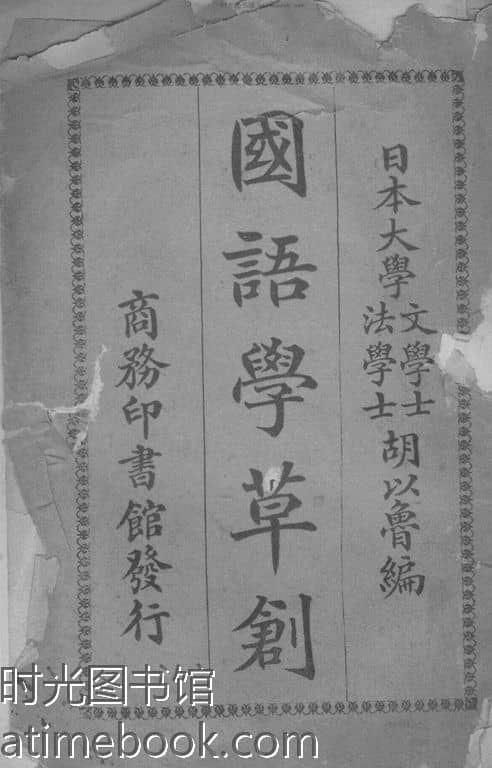 日本大學文學士法學士胡以魯編
國語學草創
商務印書館發行
时光图书馆
atimebook.com